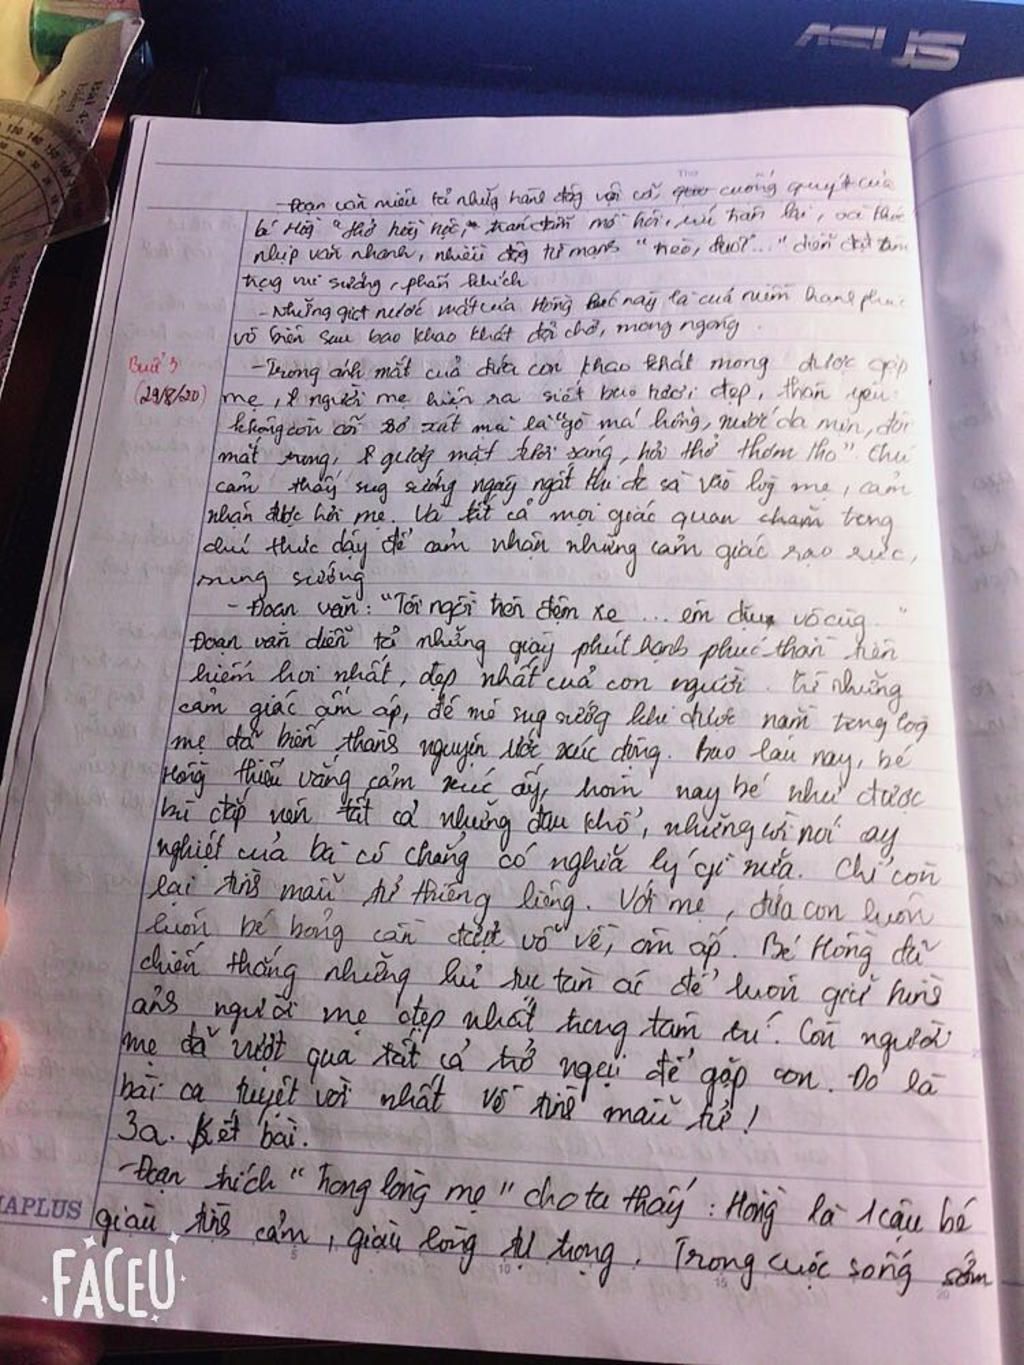 ASUS
- Đoạn văn miêu tả những hành động vội vã, cuống quýt của
bé Hồg "thở hồg hộc, trán đẫm mồ hôi, ríu chân lại, và
nhịp văn nhanh, nhiều độg từ mạnh "trèo, đuổi..." diễn đạt tâm
trạg vui sướng, phấn khích
- Những giọt nước mắt của Hồng lúc này là của niềm hạnh phúc
vô biên sau bao khao khát đợi chờ, mong ngóng.
Buổi 3
(29/8/20)
- Trong ánh mắt của đứa con khao khát mong được gặp
mẹ, người mẹ hiện ra xiết bao tươi đẹp, thân yêu
không còn cõi xơ xác mà là "gò má hồng, nước da mịn, đôi
mắt trong, gương mặt tươi sáng, hơi thở thơm tho". Chú
cảm thấy sug sướng ngây ngất khi đc sà vào lòg mẹ, cảm
nhận được hơi mẹ. Và tất cả mọi giác quan trong
chú thức dậy để cảm nhận những cảm giác rạo rực,
sung sướng
- Đoạn văn: "Tôi ngồi trên đệm xe ... êm dịu vô cùg"
Đoạn văn diễn tả những giây phút hạnh phúc thần tiên
hiếm hoi nhất, đẹp nhất của con người. Từ những
cảm giác ấm áp, đê mê sug sướg khi được nằm trong lòg
mẹ đã biến thành nguyện ước xúc động. Bao lâu nay, bé
Hồng thiếu vắng cảm xúc ấy, hôm nay bé như được
bù đắp nên tất cả những đau khổ, những lời nói cay
nghiệt của bà cô chẳng có nghĩa lý gì nữa. Chỉ còn
lại tình mẫu tử thiêng liêng. Với mẹ, đứa con luôn
luôn bé bỏng cần được vỗ về, ôm ấp. Bé Hồng đã
chiến thắng những hủ tục tàn ác để luôn giữ hình
ảnh người mẹ đẹp nhất trong tâm trí. Còn người
mẹ đã vượt qua tất cả trở ngại để gặp con. Đó là
bài ca tuyệt vời nhất về tình mẫu tử!
3a. Kết bài.
- Đoạn trích "Trong lòng mẹ" cho ta thấy: Hồng là 1 cậu bé
giàu tình cảm, giàu lòng tự trọng. Trong cuộc sống sớm
HAPLUS
FACEU